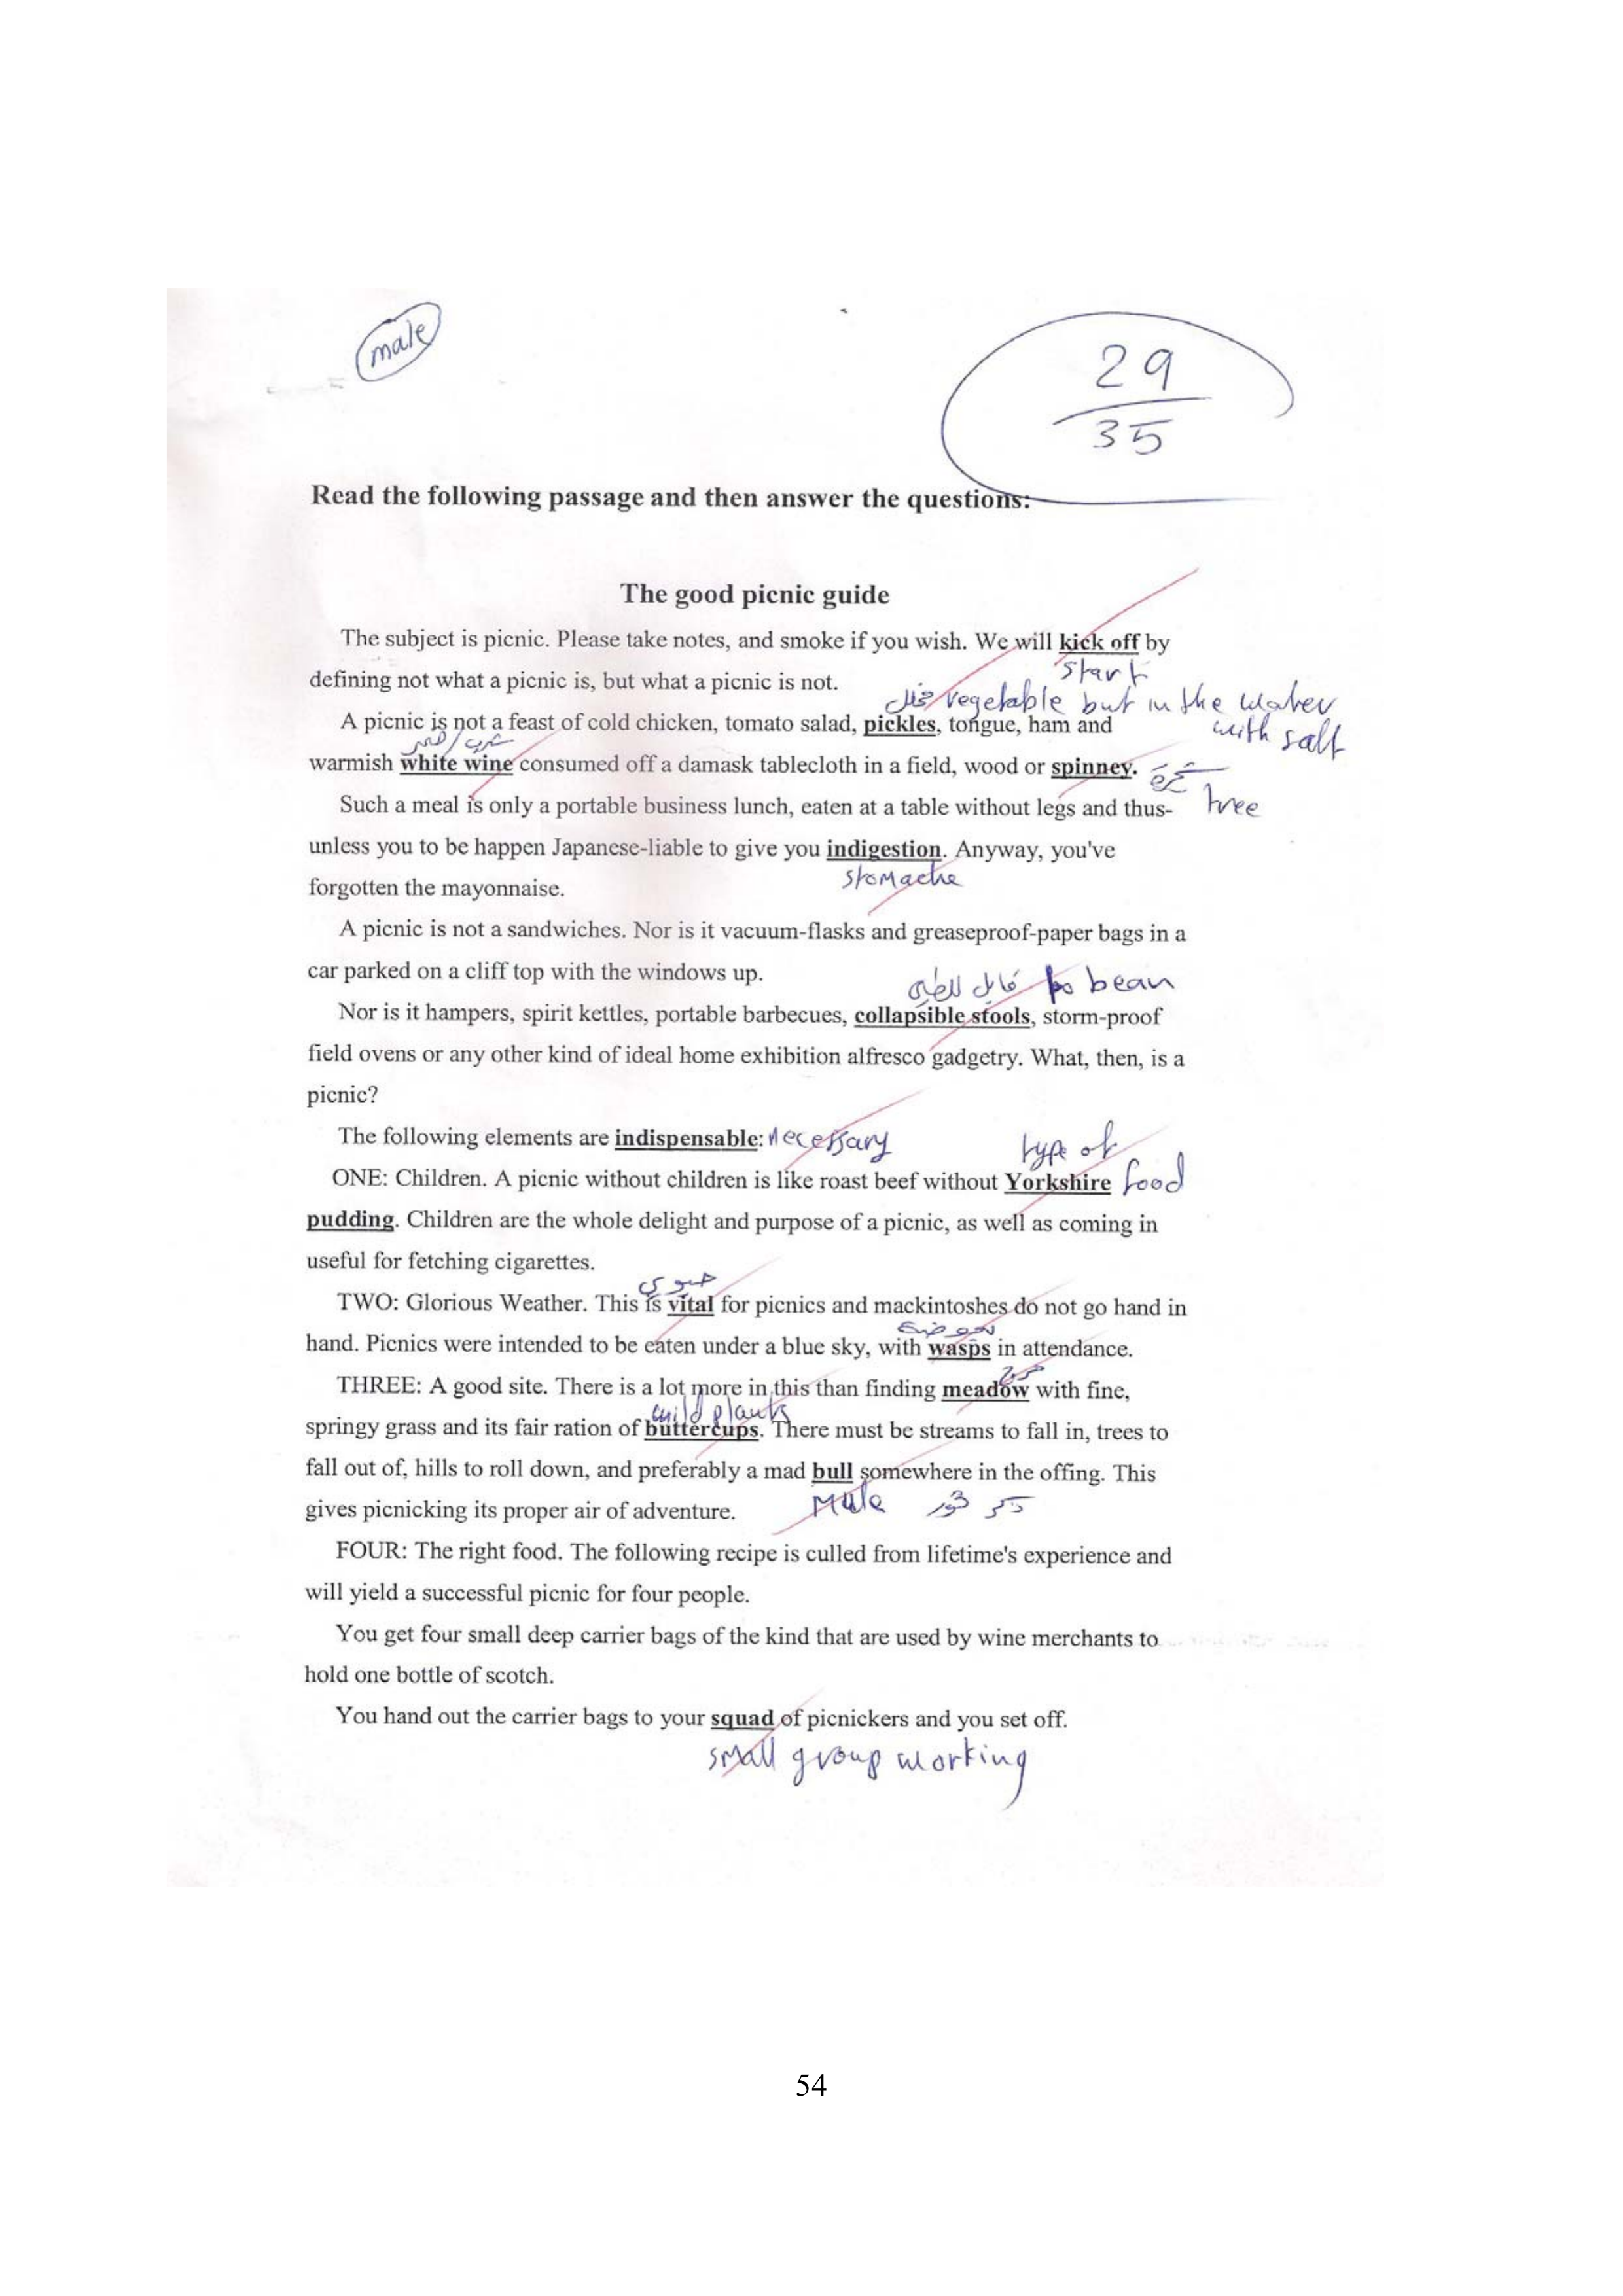 male
29
35
Read the following passage and then answer the questions:
The good picnic guide
The subject is picnic. Please take notes, and smoke if you wish. We will kick off by
start
defining not what a picnic is, but what a picnic is not.
مخلل vegetable but in the water
with salt
A picnic is not a feast of cold chicken, tomato salad, pickles, tongue, ham and
warmish white wine consumed off a damask tablecloth in a field, wood or spinney.
شجرة
tree
Such a meal is only a portable business lunch, eaten at a table without legs and thus-
unless you to be happen Japanese-liable to give you indigestion. Anyway, you've
stomache
forgotten the mayonnaise.
A picnic is not a sandwiches. Nor is it vacuum-flasks and greaseproof-paper bags in a
car parked on a cliff top with the windows up.
قابل للطي to bean
Nor is it hampers, spirit kettles, portable barbecues, collapsible stools, storm-proof
field ovens or any other kind of ideal home exhibition alfresco gadgetry. What, then, is a
picnic?
The following elements are indispensable: necessary
type of
food
ONE: Children. A picnic without children is like roast beef without Yorkshire
pudding. Children are the whole delight and purpose of a picnic, as well as coming in
useful for fetching cigarettes.
حيوي
TWO: Glorious Weather. This is vital for picnics and mackintoshes do not go hand in
hand. Picnics were intended to be eaten under a blue sky, with wasps in attendance.
THREE: A good site. There is a lot more in this than finding meadow with fine,
wild plants
springy grass and its fair ration of buttercups. There must be streams to fall in, trees to
fall out of, hills to roll down, and preferably a mad bull somewhere in the offing. This
gives picnicking its proper air of adventure.
Male ذكر ثور
FOUR: The right food. The following recipe is culled from lifetime's experience and
will yield a successful picnic for four people.
You get four small deep carrier bags of the kind that are used by wine merchants to
hold one bottle of scotch.
You hand out the carrier bags to your squad of picnickers and you set off.
small group working
54